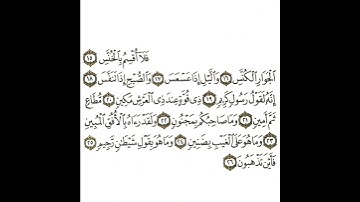 فَلَآ أُقْسِمُ بِٱلْخُنَّسِ ١٥
ٱلْجَوَارِ ٱلْكُنَّسِ ١٦ وَٱلَّيْلِ إِذَا عَسْعَسَ ١٧ وَٱلصُّبْحِ إِذَا تَنَفَّسَ ١٨
إِنَّهُۥ لَقَوْلُ رَسُولٍ كَرِيمٍ ١٩ ذِى قُوَّةٍ عِندَ ذِى ٱلْعَرْشِ مَكِينٍ ٢٠ مُّطَاعٍ
ثَمَّ أَمِينٍ ٢١ وَمَا صَاحِبُكُم بِمَجْنُونٍ ٢٢ وَلَقَدْ رَءَاهُ بِٱلْأُفُقِ ٱلْمُبِينِ
٢٣ وَمَا هُوَ عَلَى ٱلْغَيْبِ بِضَنِينٍ ٢٤ وَمَا هُوَ بِقَوْلِ شَيْطَٰنٍ رَّجِيمٍ ٢٥
فَأَيْنَ تَذْهَبُونَ ٢٦